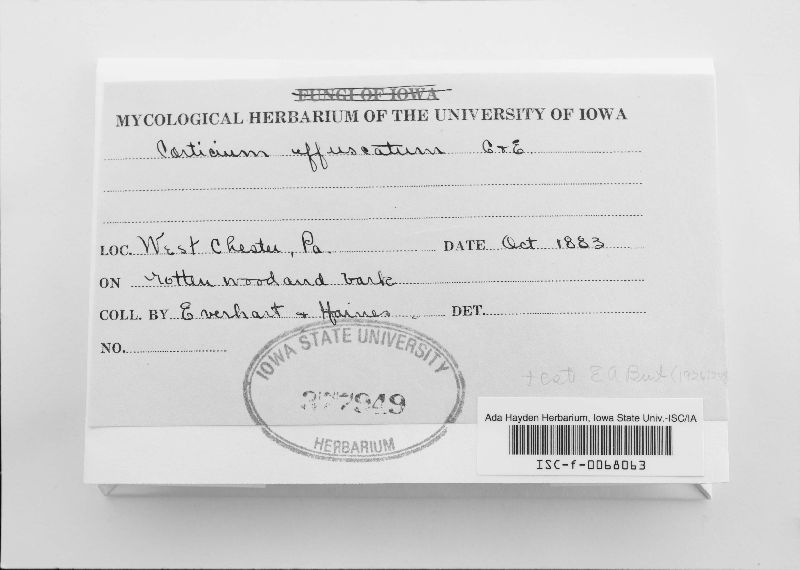 FUNGI OF IOWA
MYCOLOGICAL HERBARIUM OF THE UNIVERSITY OF IOWA
Corticium effuscatum C & E
LOC. West Chester, Pa. DATE Oct 1883
ON rotten wood and bark
COLL. BY Everhart & Haines. DET.
NO.
IOWA STATE UNIVERSITY
HERBARIUM
E A Burt (1926
Ada Hayden Herbarium, Iowa State Univ.-ISC/IA
ISC-f-0068063